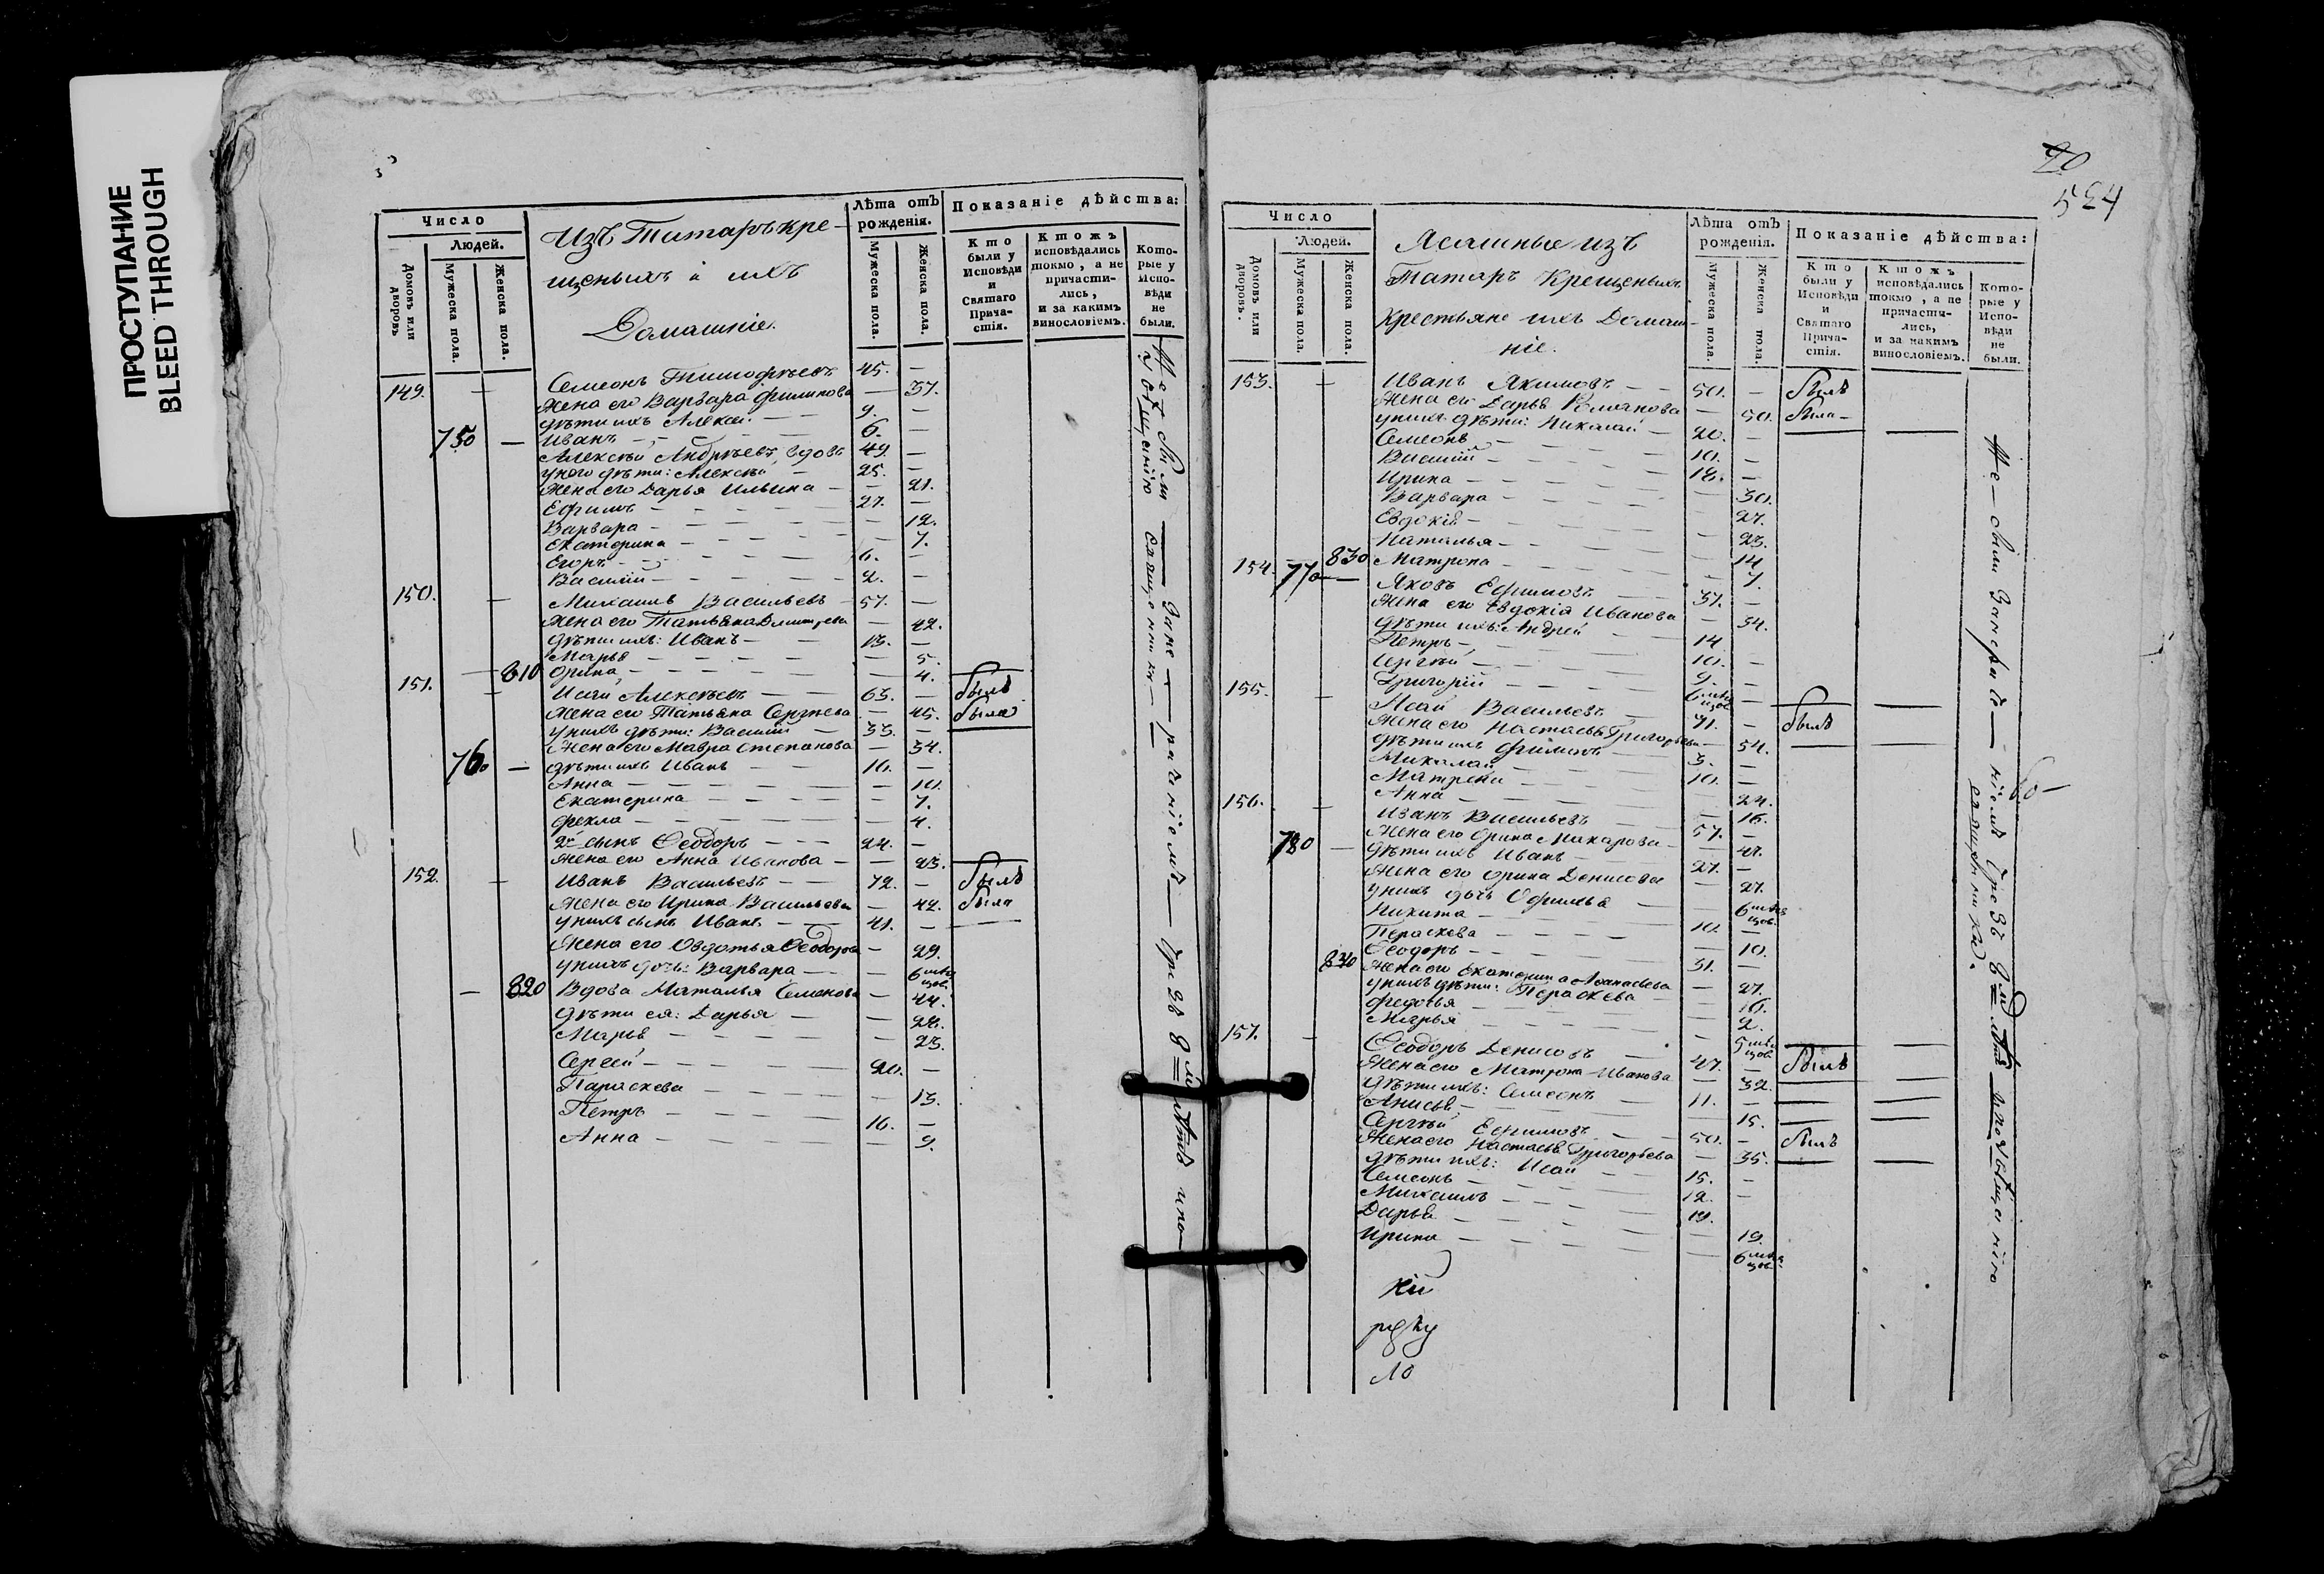 ПРОСТУПАНИЕ
BLEED THROUGH
Число
Людей.
Домовъ или дворовъ
Мужеска пола.
Женска пола.
Изъ Татаръ кре-
щеныхъ и ихъ
Домашніе.
Лѣта отъ рожденія.
Мужеска пола.
Женска пола.
Показаніе дѣйства:
Кто были у Исповѣди и Святаго Прича-стія.
Ктожъ исповѣдались токмо, а не причасти-лись, и за какимъ винословіемъ.
Кото-рые у Испо-вѣди не были.
149. — Семеонъ Тимофѣевъ 45. —
Жена его Варвара Филипова — 37.
дѣти ихъ Алексѣй — 9. —
750 — Иванъ — 6. —
Алексѣй Андрѣевъ, вдовъ 49. —
у него дѣти: Алексѣй — 25. —
Жена его Дарья Ильина — — 21.
Ефимъ — 27. —
Варвара — — 12.
Екатерина — — 7.
Егоръ — 6. —
Василій — 2. —
150. — Михаилъ Васильевъ — 57. —
Жена его Татьяна Дмитрева — 42.
дѣти ихъ: Иванъ — 13. —
Марья — — 5.
— 810 Орина — — 4.
151. — Исаи Алексѣевъ — 63. — былъ
Жена его Татьяна Сергѣева — 45. была
у нихъ дѣти: Василій — 33. —
Жена его Мавра Степанова — 34.
760 — дѣти ихъ Иванъ — 10. —
Анна — — 10.
Екатерина — — 7.
Фекла — — 4.
2й сынъ Ѳеодоръ — 24. —
Жена его Анна Иванова — — 23.
152. — Иванъ Васильевъ — 72. — былъ
Жена его Ирина Васильева — 42. была
у нихъ сынъ Иванъ — 41. —
Жена его Овдотья Ѳеодорова — 29.
у нихъ дочь: Варвара — — 6 мѣсяцов.
— 820 Вдова Наталья Семенова — 44.
дѣти ея: Дарья — — 28.
Марья — — 23.
Сергей — 20. —
Параскева — — 13.
Петръ — 16. —
Анна — — 9.
Не были — зане — рченіемъ — Чрезъ 8м лѣтъ и по
извѣщенію священника
20
534
Число
Людей.
Домовъ или дворовъ.
Мужеска пола.
Женска пола.
Ясашные изъ
Татаръ Крещеныхъ
Крестьяне ихъ Домаш-
ніе.
Лѣта отъ рожденія.
Мужеска пола.
Женска пола.
Показаніе дѣйства:
Кто были у Исповѣди и Святаго Прича-стія.
Ктожъ исповѣдались токмо, а не причасти-лись, и за какимъ винословіемъ.
Кото-рые у Испо-вѣди не были.
153. — Иванъ Якимовъ — 50. — былъ
Жена его Дарья Романова — 50. была —
у нихъ дѣти: Николай — 20. —
Семеонъ — 10. —
Василій — 18. —
Ирина — — 30.
Варвара — — 27.
Евдокія — — 23.
Наталья — — 14
830 Матрона — — 7.
154. 770 — Яковъ Ефимовъ — 37. —
Жена его Евдокіа Иванова — 34.
дѣти ихъ: Андрей — 14
Петръ — 10. —
Сергѣй — 9. —
Григорій — 6 мѣсяцов —
155. — Исаи Васильевъ — 71. — былъ
Жена его Настасья Григорьева — 54.
дѣти ихъ Филипъ — 3. —
Николай — 10. —
Матрена — — 24.
Анна — — 16.
156. — Иванъ Васильевъ — 57. —
Жена его Орина Макарова — — 47.
780 — дѣти ихъ Иванъ — 27. —
Жена его Орина Денисова — 27.
у нихъ дочь Офимья — — 6 мѣсяцов.
Никита — 10. —
Пераскева — — 10.
Ѳеодоръ — 31. —
840 Жена его Екатерина Аѳанасьева — 27.
у нихъ дѣти: Пераскева — — 16.
Федосья — — 2.
Марья — — 5 мѣсяцов.
157. — Ѳеодоръ Денисовъ — 47. — былъ
Жена его Матрона Иванова — 32.
дѣти ихъ: Семеонъ — 11. —
Анисья — — 15.
Сергѣй Ефимовъ — 50. — былъ
Жена его Настасья Григорьева — 35.
дѣти ихъ: Исаи — 15. —
Семеонъ — 12. —
Михаилъ — 19.
Дарья — — 19.
Ирина — — 6 мѣсяцов.
Не — были — ніемъ Чрезъ 8м лѣтъ и по извѣщенію
священника.
кй
рдку
ло